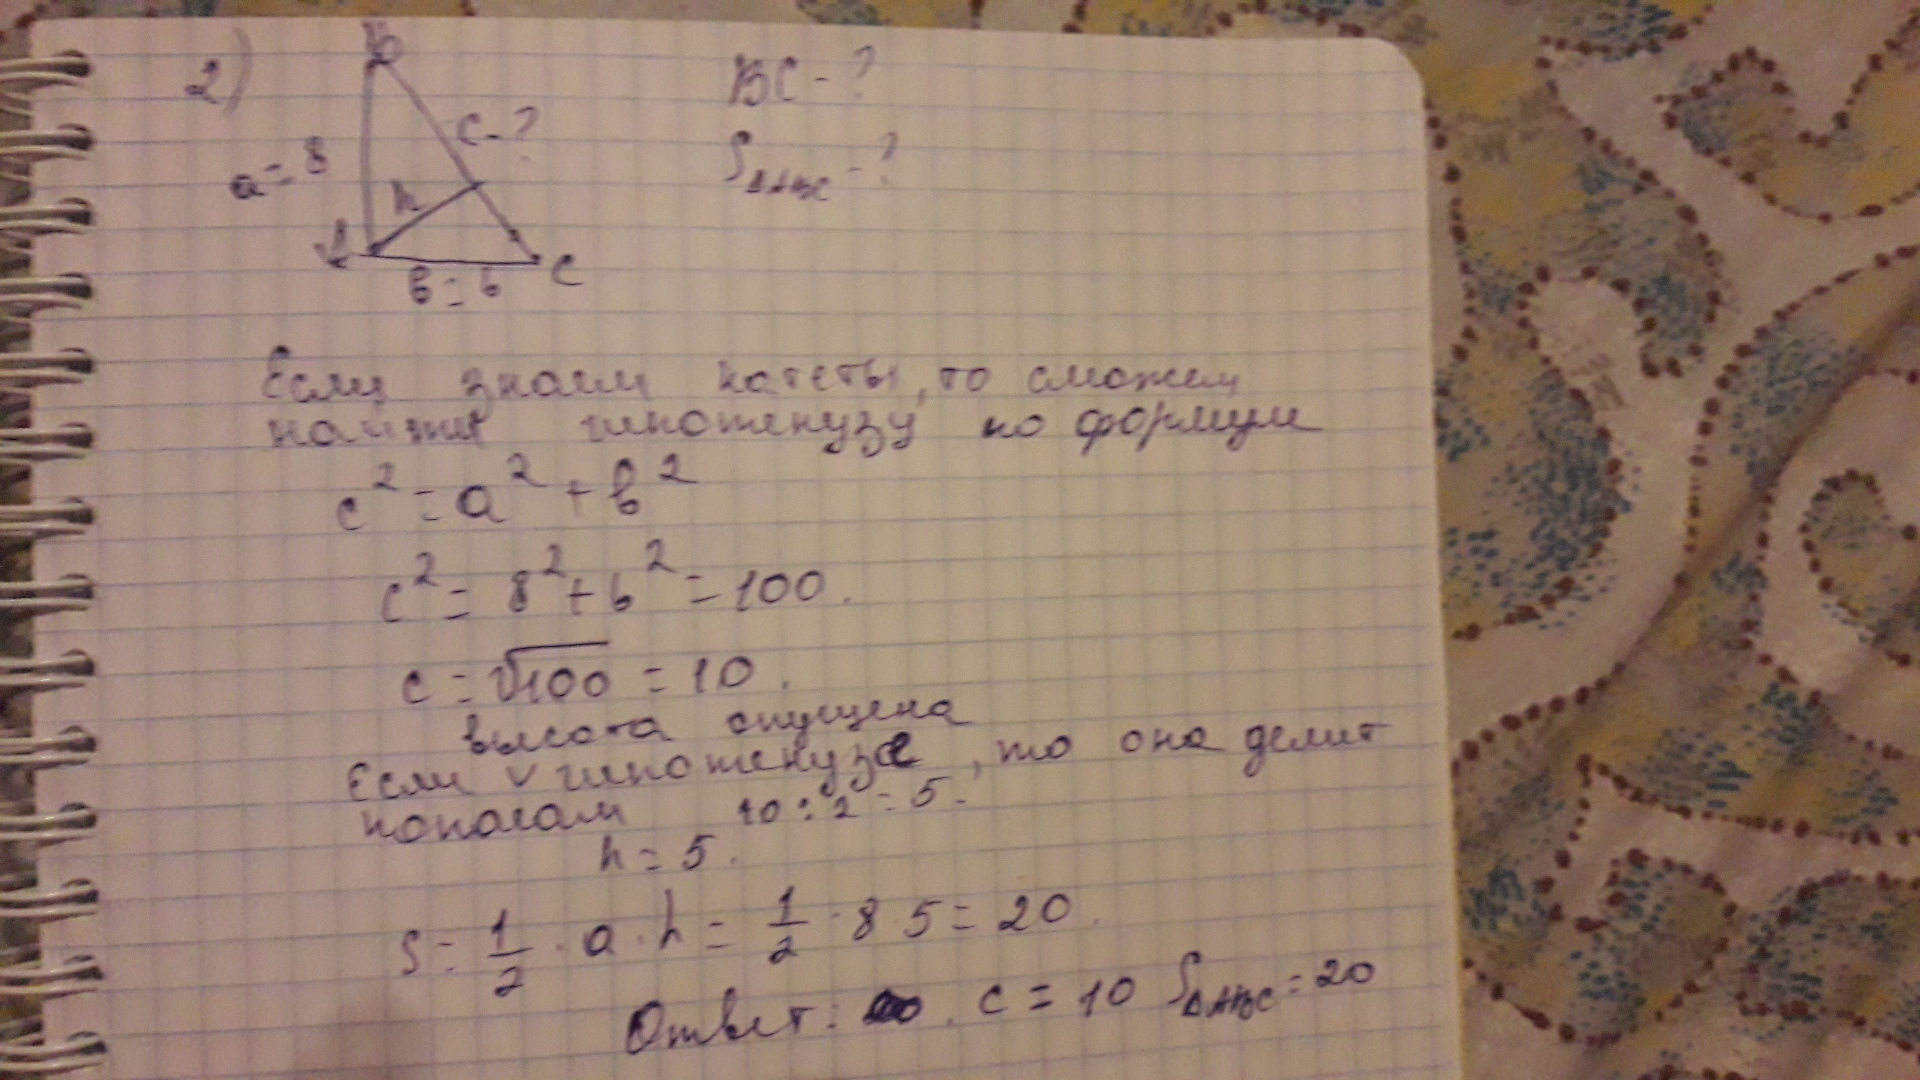 2)
B
BC - ?
c - ?
S△ABC - ?
a = 8
h
A
в = 6
C
Если знаем катеты, то сможем
найти гипотенузу по формуле
c² = a² + в²
c² = 8² + 6² = 100.
c = √100 = 10.
высота опущена
Если v гипотенузе, то она делит
пополам 10 : 2 = 5.
h = 5.
S = 1/2 · a · h = 1/2 · 8 · 5 = 20.
Ответ: . c = 10 S△ABC = 20